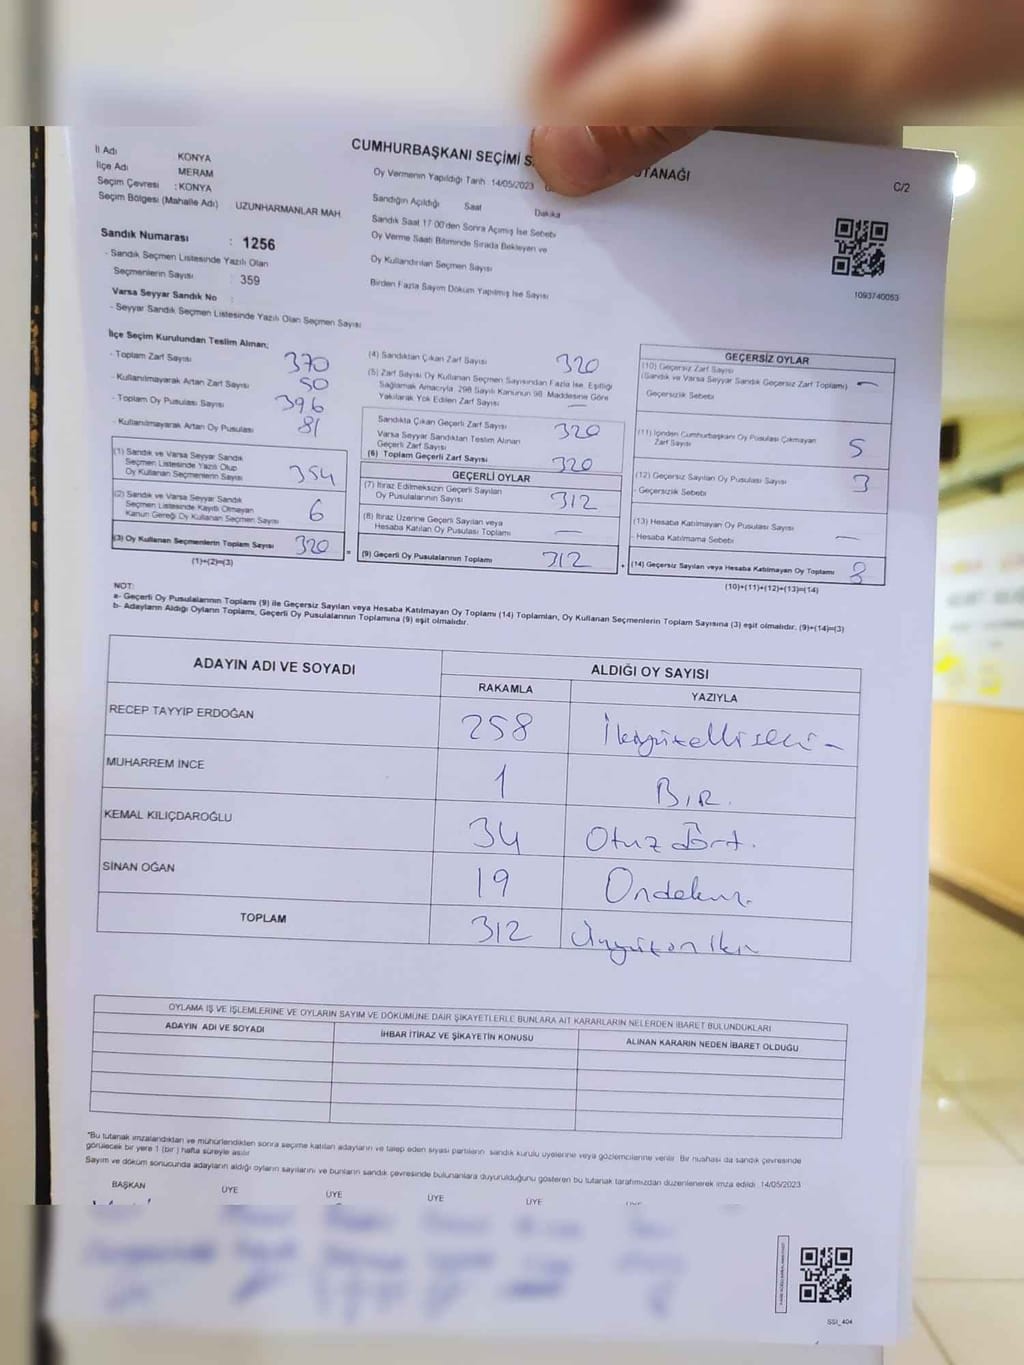 CUMHURBAŞKANI SEÇİMİ S TANAĞI
C/2
İl Adı KONYA
İlçe Adı MERAM
Seçim Çevresi : KONYA
Seçim Bölgesi (Mahalle Adı) : UZUNHARMANLAR MAH.
Sandık Numarası : 1256
- Sandık Seçmen Listesinde Yazılı Olan
Seçmenlerin Sayısı : 359
Varsa Seyyar Sandık No :
- Seyyar Sandık Seçmen Listesinde Yazılı Olan Seçmen Sayısı
Oy Vermenin Yapıldığı Tarih : 14/05/2023
Sandığın Açıldığı Saat Dakika
Sandık Saat 17:00'den Sonra Açımış İse Sebebi
Oy Verme Saati Bitiminde Sırada Bekleyen ve
Oy Kullandırılan Seçmen Sayısı
Birden Fazla Sayım Döküm Yapılmış İse Sayısı
1093740053
İlçe Seçim Kurulundan Teslim Alınan;
- Toplam Zarf Sayısı 370
- Kullanılmayarak Artan Zarf Sayısı 50
- Toplam Oy Pusulası Sayısı 396
- Kullanılmayarak Artan Oy Pusulası 81
(1) Sandık ve Varsa Seyyar Sandık
Seçmen Listesinde Yazılı Olup
Oy Kullanan Seçmenlerin Sayısı 354
(2) Sandık ve Varsa Seyyar Sandık
Seçmen Listesinde Kayıtlı Olmayan
Kanun Gereği Oy Kullanan Seçmen Sayısı 6
(3) Oy Kullanan Seçmenlerin Toplam Sayısı 320 =
(1)+(2)=(3)
(4) Sandıktan Çıkan Zarf Sayısı 320
(5) Zarf Sayısı Oy Kullanan Seçmen Sayısından Fazla İse, Eşitliği
Sağlamak Amacıyla, 298 Sayılı Kanunun 98. Maddesine Göre
Yakılarak Yok Edilen Zarf Sayısı —
Sandıkta Çıkan Geçerli Zarf Sayısı 320
Varsa Seyyar Sandıktan Teslim Alınan
Geçerli Zarf Sayısı
(6) Toplam Geçerli Zarf Sayısı 320
GEÇERLİ OYLAR
(7) İtiraz Edilmeksizin Geçerli Sayılan
Oy Pusulalarının Sayısı 312
(8) İtiraz Üzerine Geçerli Sayılan veya
Hesaba Katılan Oy Pusulası Toplamı —
(9) Geçerli Oy Pusulalarının Toplamı 312 +
GEÇERSİZ OYLAR
(10) Geçersiz Zarf Sayısı
(Sandık ve Varsa Seyyar Sandık Geçersiz Zarf Toplamı) —
Geçersizlik Sebebi
(11) İçinden Cumhurbaşkanı Oy Pusulası Çıkmayan
Zarf Sayısı 5
(12) Geçersiz Sayılan Oy Pusulası Sayısı 3
- Geçersizlik Sebebi
(13) Hesaba Katılmayan Oy Pusulası Sayısı
- Hesaba Katılmama Sebebi —
(14) Geçersiz Sayılan veya Hesaba Katılmayan Oy Toplamı 8
(10)+(11)+(12)+(13)=(14)
NOT:
a- Geçerli Oy Pusulalarının Toplamı (9) ile Geçersiz Sayılan veya Hesaba Katılmayan Oy Toplamı (14) Toplamları, Oy Kullanan Seçmenlerin Toplam Sayısına (3) eşit olmalıdır. (9)+(14)=(3)
b- Adayların Aldığı Oyların Toplamı, Geçerli Oy Pusulalarının Toplamına (9) eşit olmalıdır.
ADAYIN ADI VE SOYADI ALDIĞI OY SAYISI
RAKAMLA YAZIYLA
RECEP TAYYİP ERDOĞAN 258 İkiyüzellisekiz -
MUHARREM İNCE 1 BİR.
KEMAL KILIÇDAROĞLU 34 Otuz Dört.
SİNAN OĞAN 19 Ondokuz.
TOPLAM 312 Üçyüzoniki
OYLAMA İŞ VE İŞLEMLERİNE VE OYLARIN SAYIM VE DÖKÜMÜNE DAİR ŞİKAYETLERLE BUNLARA AİT KARARLARIN NELERDEN İBARET BULUNDUKLARI
ADAYIN ADI VE SOYADI İHBAR İTİRAZ VE ŞİKAYETİN KONUSU ALINAN KARARIN NEDEN İBARET OLDUĞU
"Bu tutanak imzalandıktan ve mühürlendikten sonra seçime katılan adayların ve talep eden siyasi partilerin sandık kurulu üyelerine veya gözlemcilerine verilir. Bir nüshası da sandık çevresinde
görülecek bir yere 1 (bir) hafta süreyle asılır.
Sayım ve döküm sonucunda adayların aldığı oyların sayılarını ve bunların sandık çevresinde bulunanlara duyurulduğunu gösteren bu tutanak tarafımızdan düzenlenerek imza edildi. 14/05/2023
BAŞKAN ÜYE ÜYE ÜYE ÜYE
SSI_404